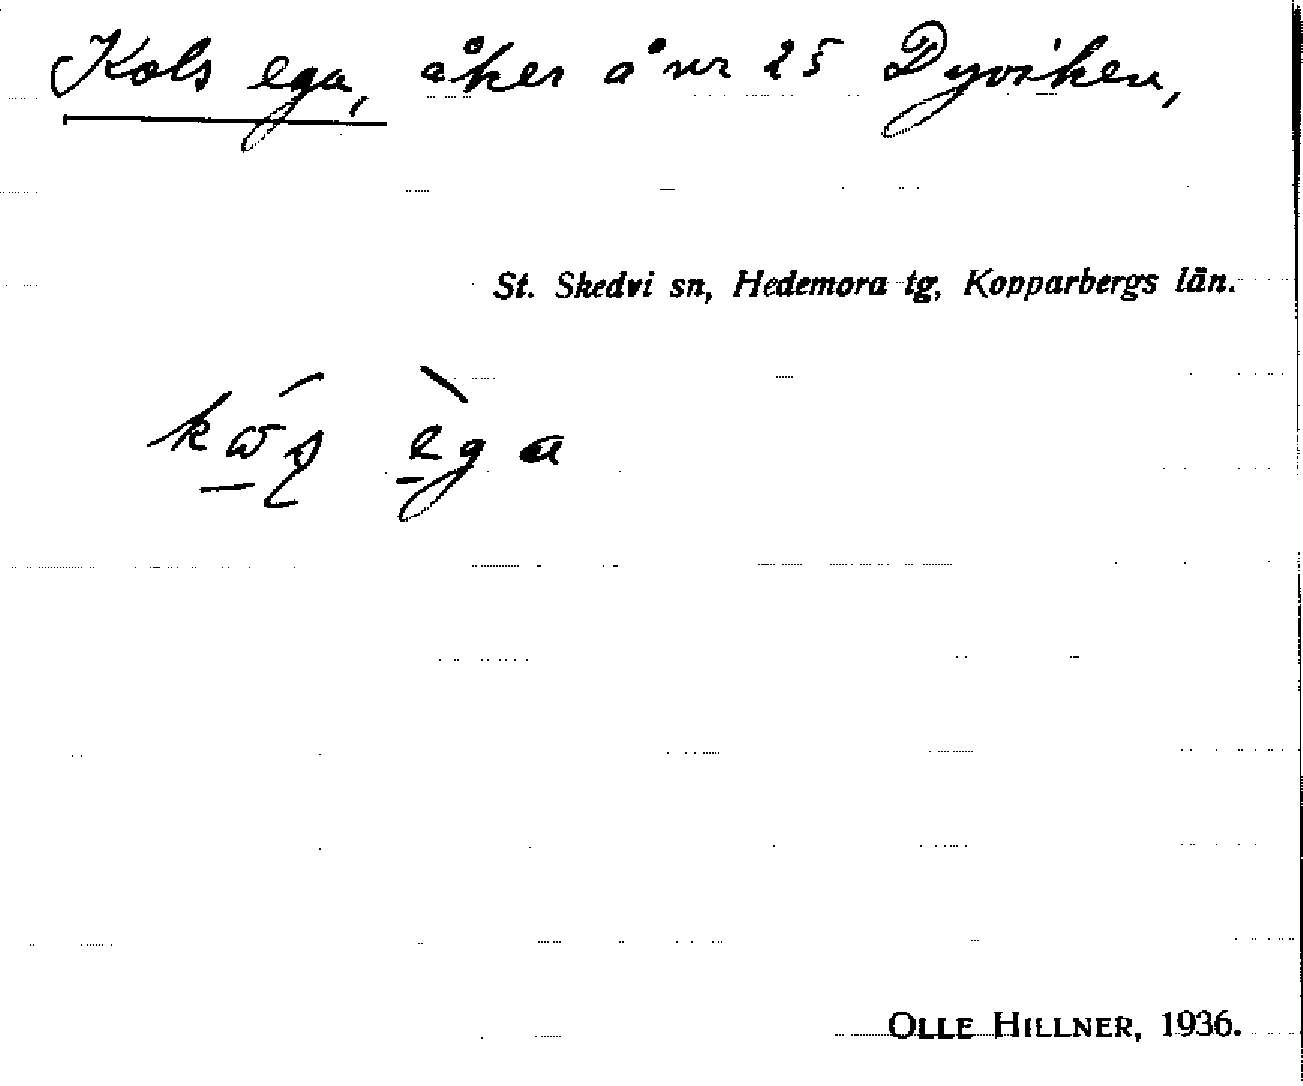 Kols ega, åker å nr 25 Dyviken,
St. Skedvi sn, Hedemora tg, Kopparbergs län.
ega
OLLE HILLNER, 1936.